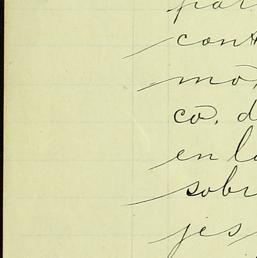 par
cont
mo,
co. d
en la
sobr
jes